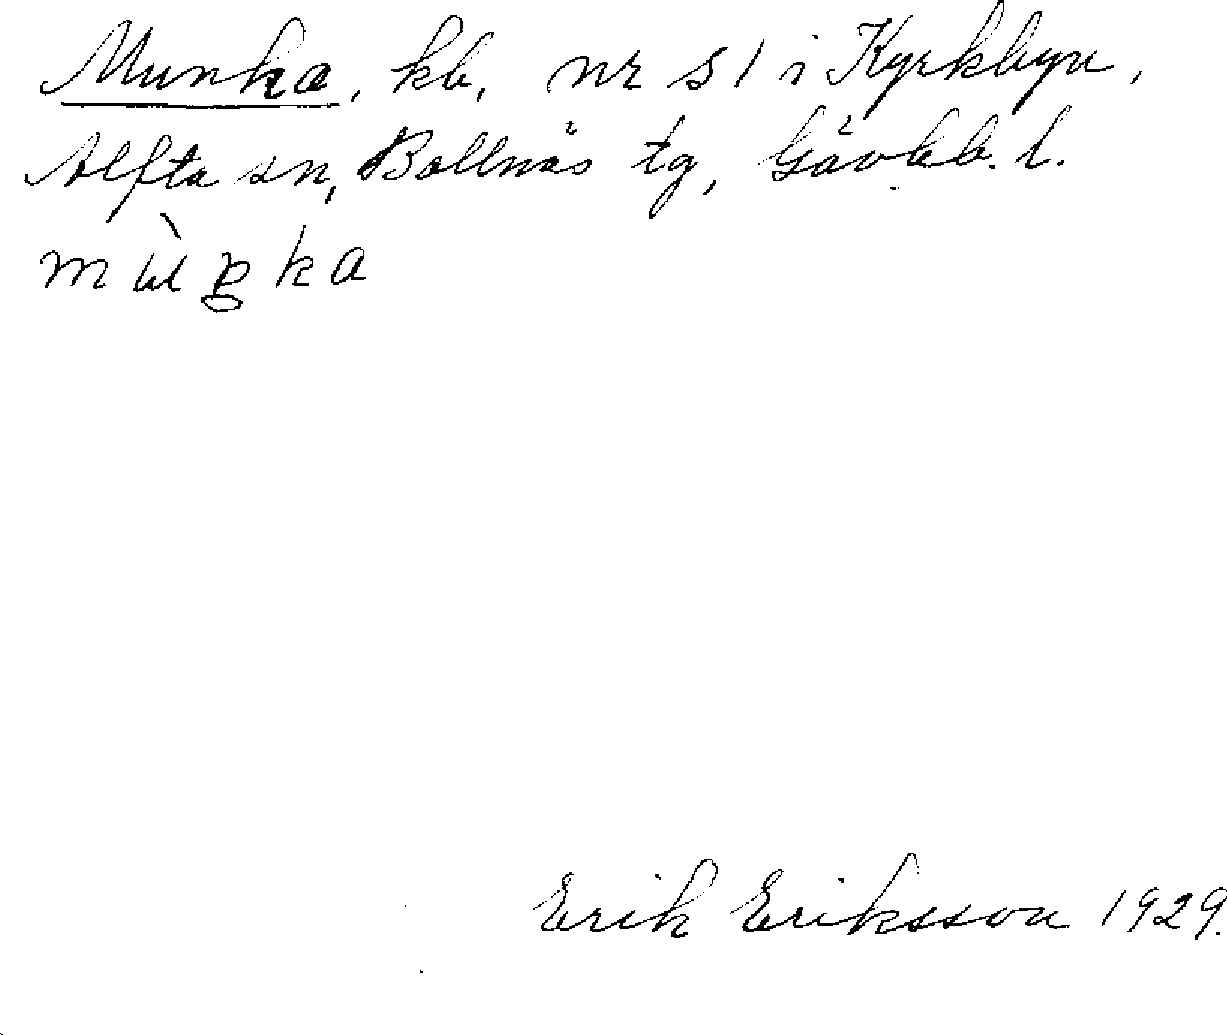 Munka, kb, nr 51 i Kyrkbyn,
Alfta sn, Bollnäs tg, Gävleb. l.
mùŋka
Erik Eriksson 1929.